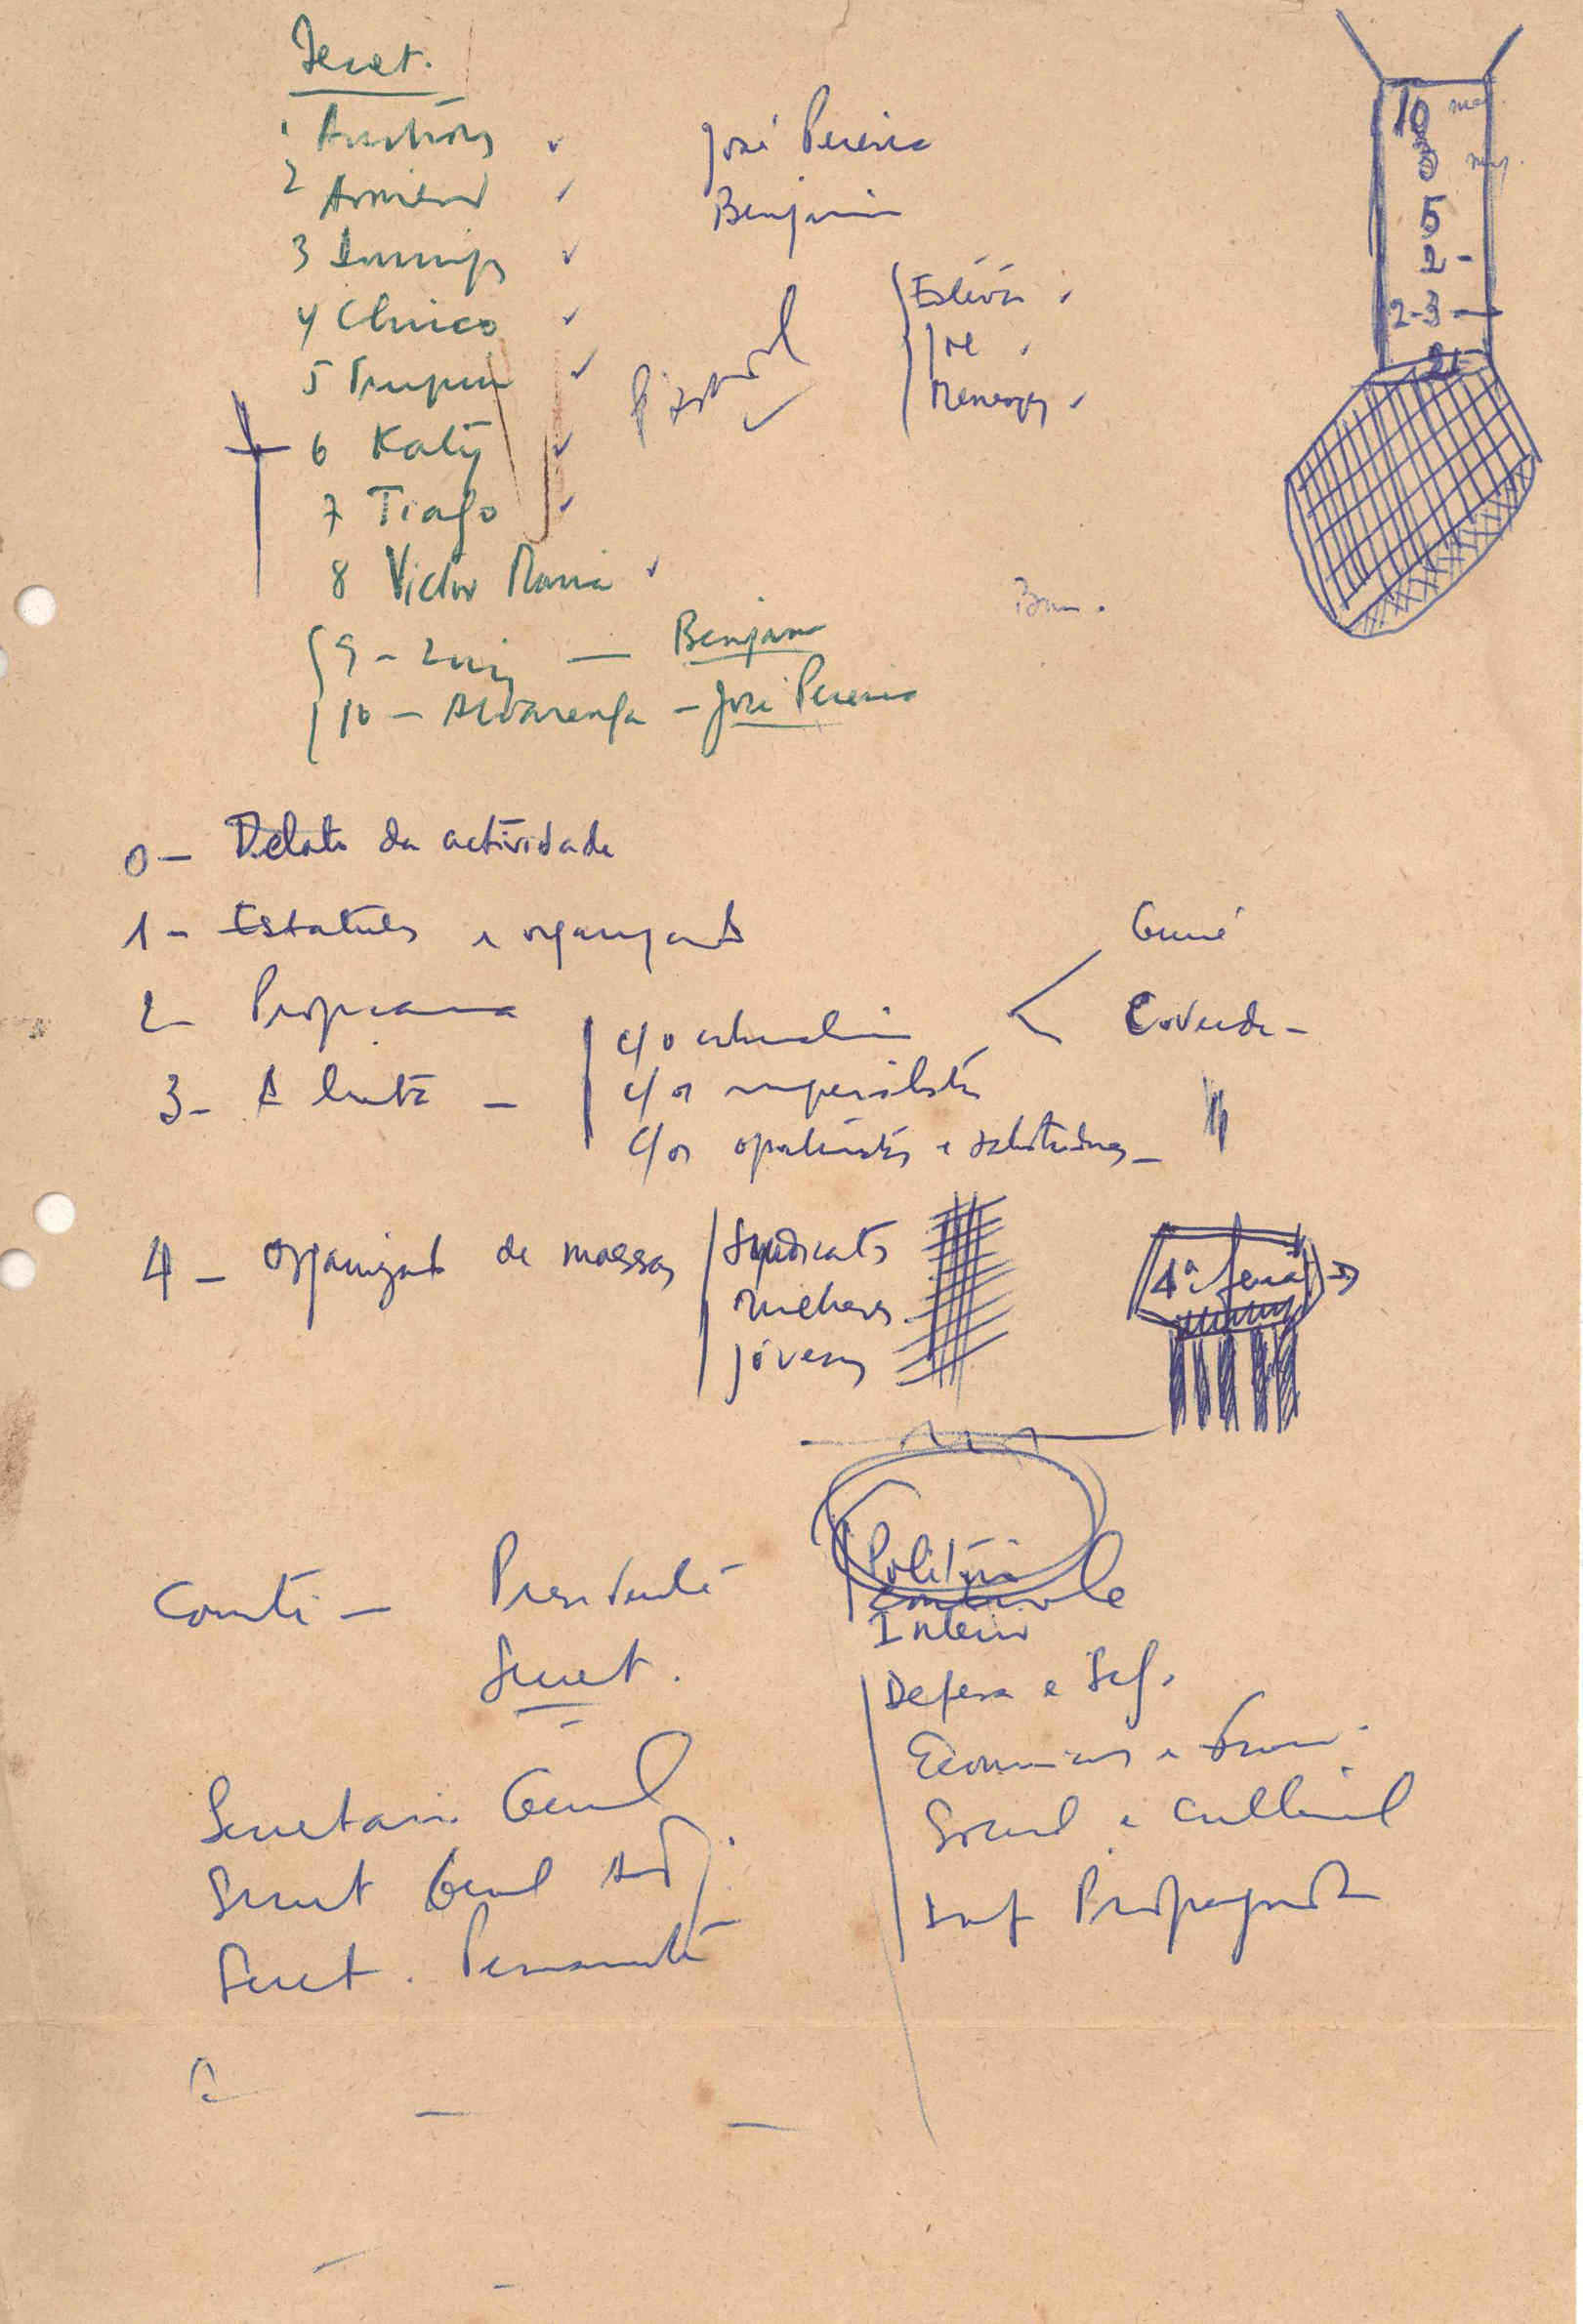 Secret.
1 Aristides
2 Armand
3 Domingos
4 Chico
5
6 Katy
7 Tiago
8 Victor Maria
9 - Luiz — Benjamin
10 - Alvarenga - José Pereira
José Pereira
Benjamin
Estevão
José
Menezes
10
8
5
2 -
2-3 -
0 - Relato da actividade
1 - Estatutos e organização
2 - Programa
3 - A luta -
c/ o colonialismo
c/ os imperialistas
c/ os oportunistas e
Guiné
C. Verde -
4 - Organizações de massas
Sindicatos
mulheres
jóvens
Comité - Presidente
Secret.
Política
Controle
Interior
Defesa e Seg.
Economia e Finan.
Social e Cultural
Inf Propaganda
Secretário Geral
Secret Geral Adj.
Secret. Permanente